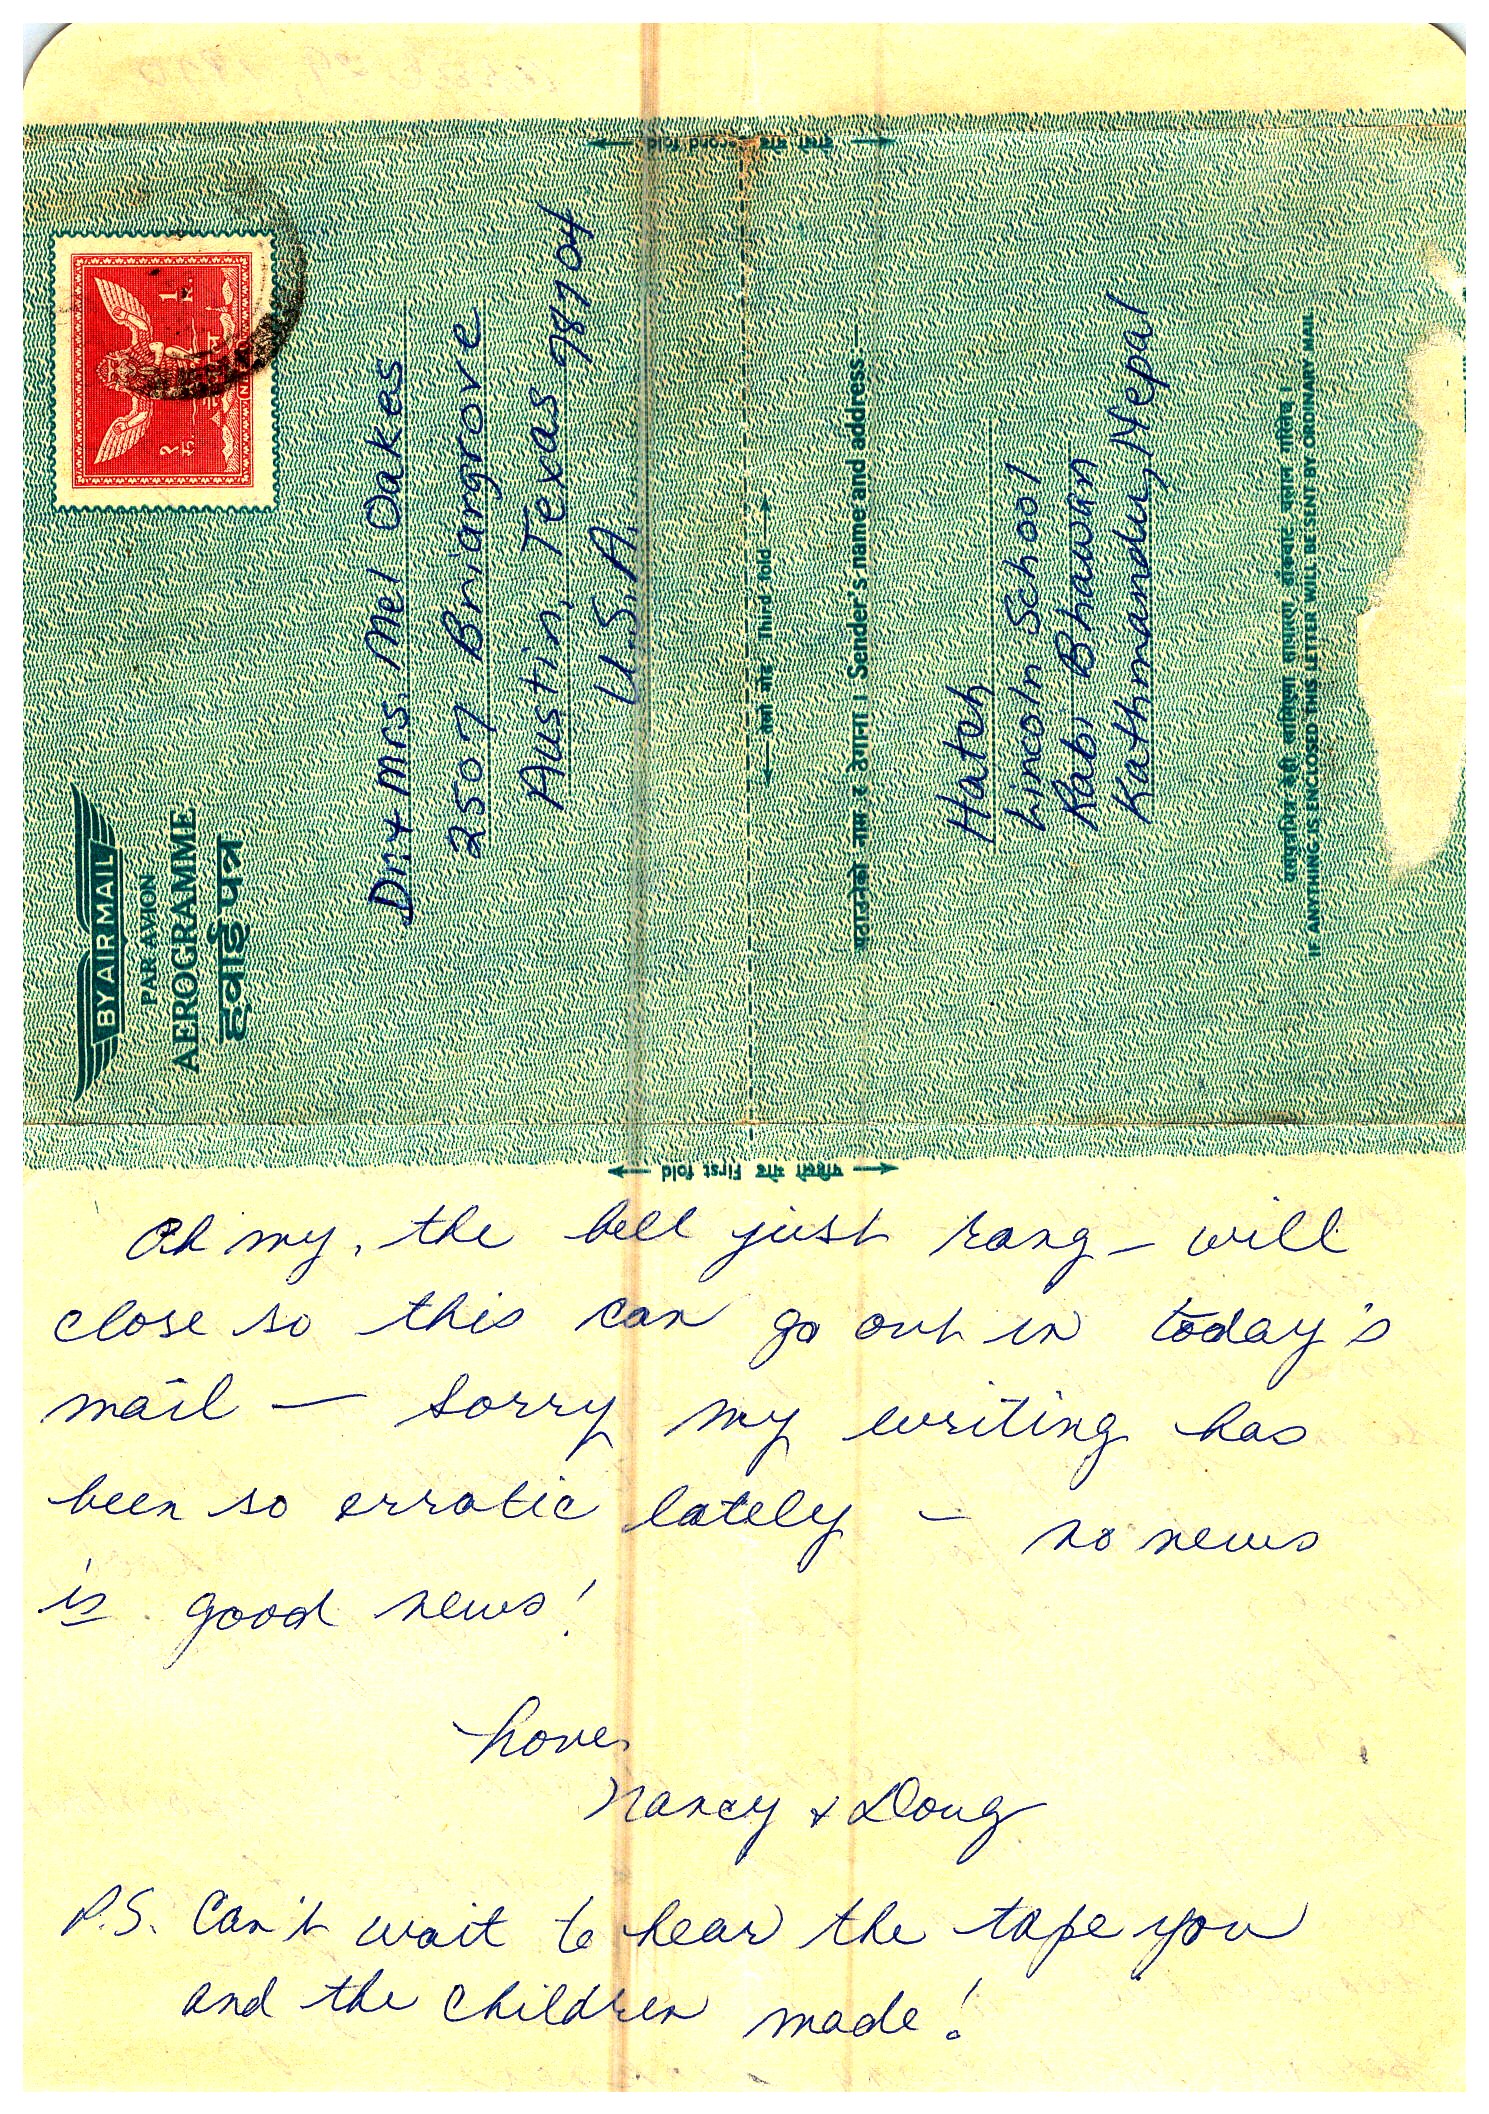 BY AIR MAIL
PAR AVION
AEROGRAMME
हवाई पत्र
१ रु.
1
Dr. + Mrs. Mel Oakes
2507 Briargrove
Austin, Texas 78704
U.S.A.
दोस्रो मोड Second fold
तेस्रो मोड Third fold
पठाउनेको नाम र ठेगाना । Sender's name and address
Hatch
Lincoln School
Rabi Bhawan
Kathmandu, Nepal
IF ANYTHING IS ENCLOSED THIS LETTER WILL BE SENT BY ORDINARY MAIL
पहिलो मोड First fold
Oh my, the bell just rang – will
close so this can go out in today's
mail — sorry my writing has
been so erratic lately – no news
is good news!
Love,
Nancy & Doug
P.S. Can't wait to hear the tape you
and the children made!